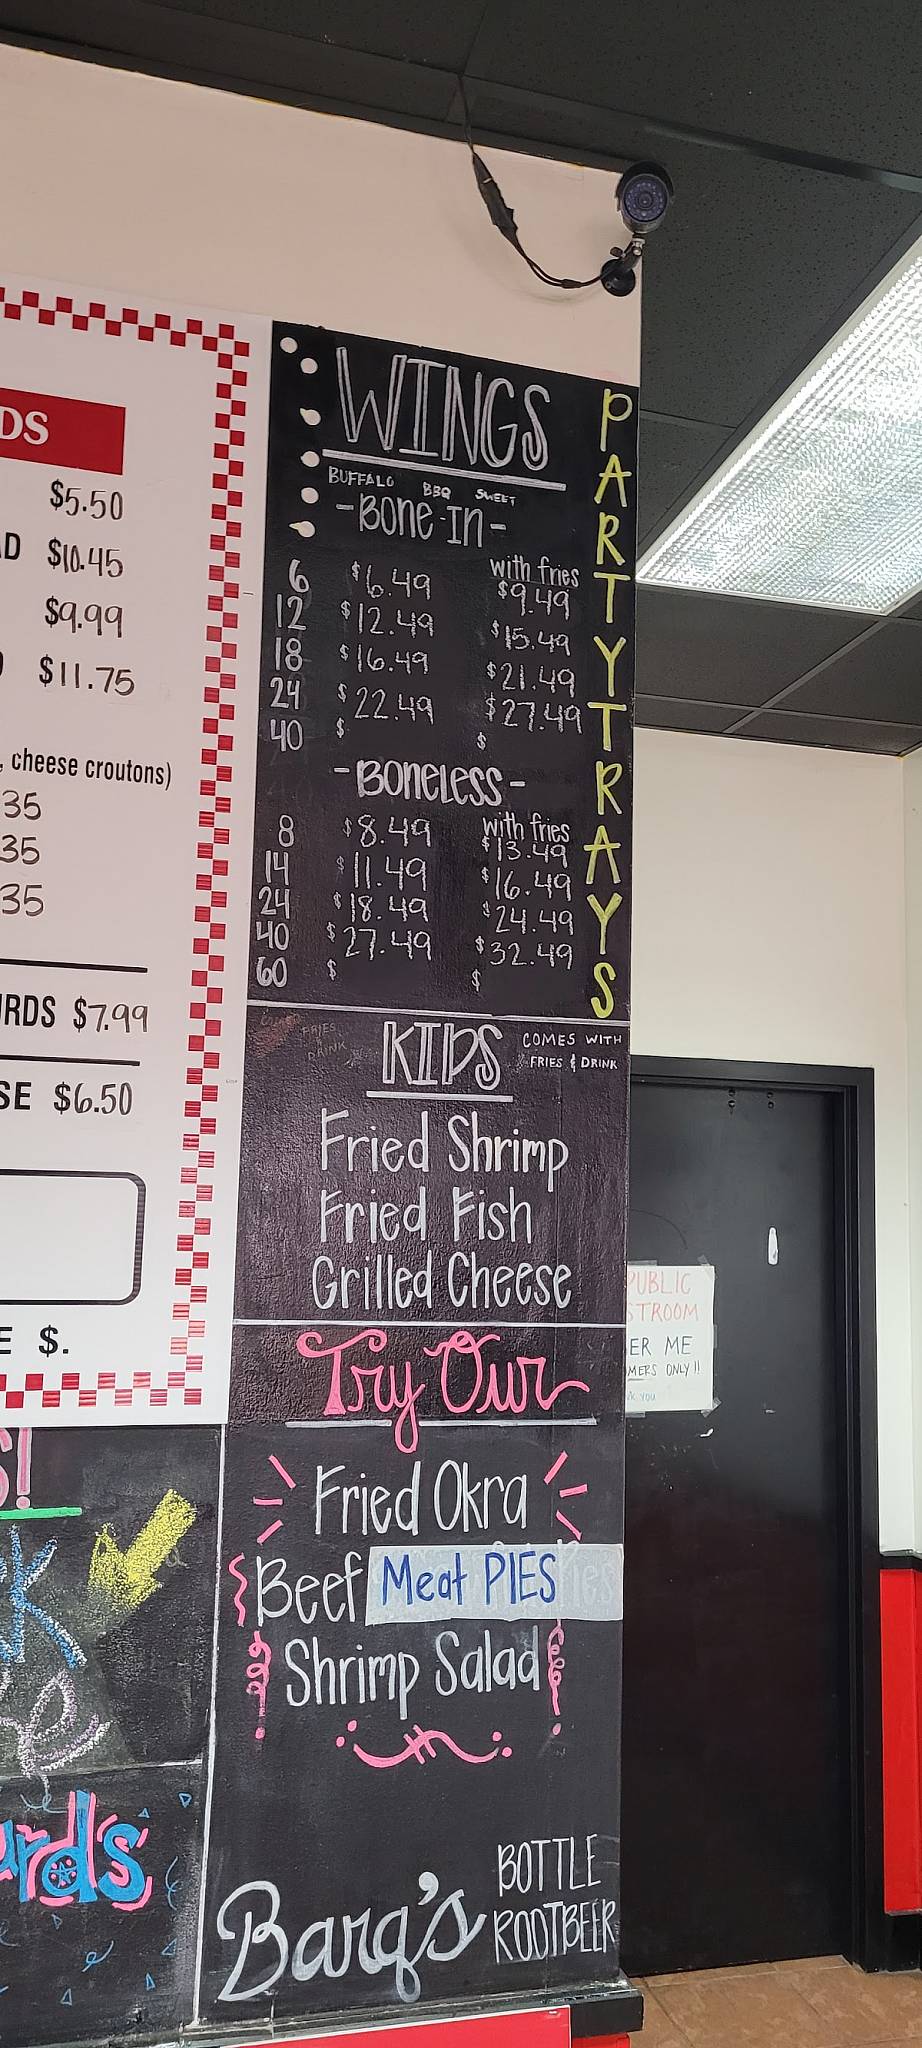 DS
$5.50
D $10.45
$9.99
$11.75
, cheese croutons)
35
35
35
URDS $7.99
SE $6.50
E $.
WINGS
BUFFALO BBQ SWEET
-BONE-IN-
with fries
6 $6.49 $9.49
12 $12.49 $15.49
18 $16.49 $21.49
24 $22.49 $27.49
40 $ $
-BONELESS-
with fries
8 $8.49 $13.49
14 $11.49 $16.49
24 $18.49 $24.49
40 $27.49 $32.49
60 $ $
PARTY TRAYS
FRIES
DRINK
KIDS
COMES WITH
FRIES & DRINK
Fried Shrimp
Fried Fish
Grilled Cheese
Try Our
Fried Okra
Beef Meat PIES
Shrimp Salad
Barq's
BOTTLE
ROOTBEER
S!
urds
PUBLIC
STROOM
ER ME
MERS ONLY!!
YOU